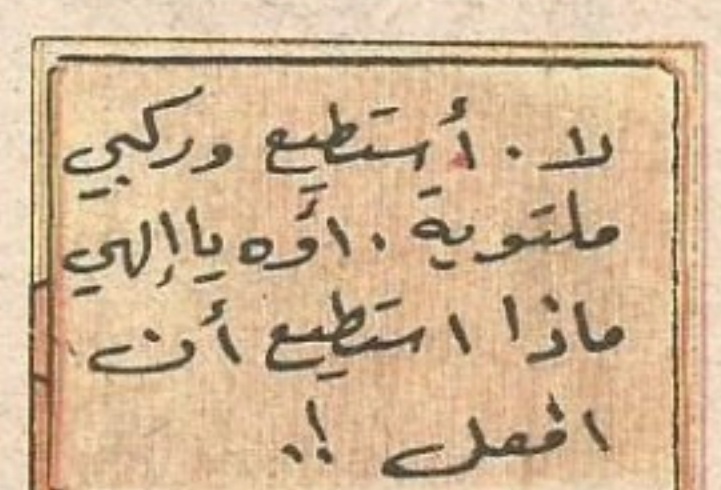 لا . أستطيع وركبي
ملتوية . اوّه يا إلهي
ماذا استطيع أن
افعل !..